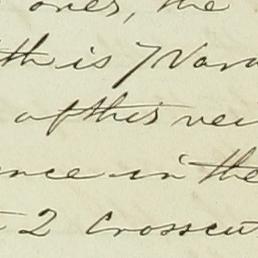 ones, the
th is 7 Vara
of this vei
nce in the
2 Crosscu